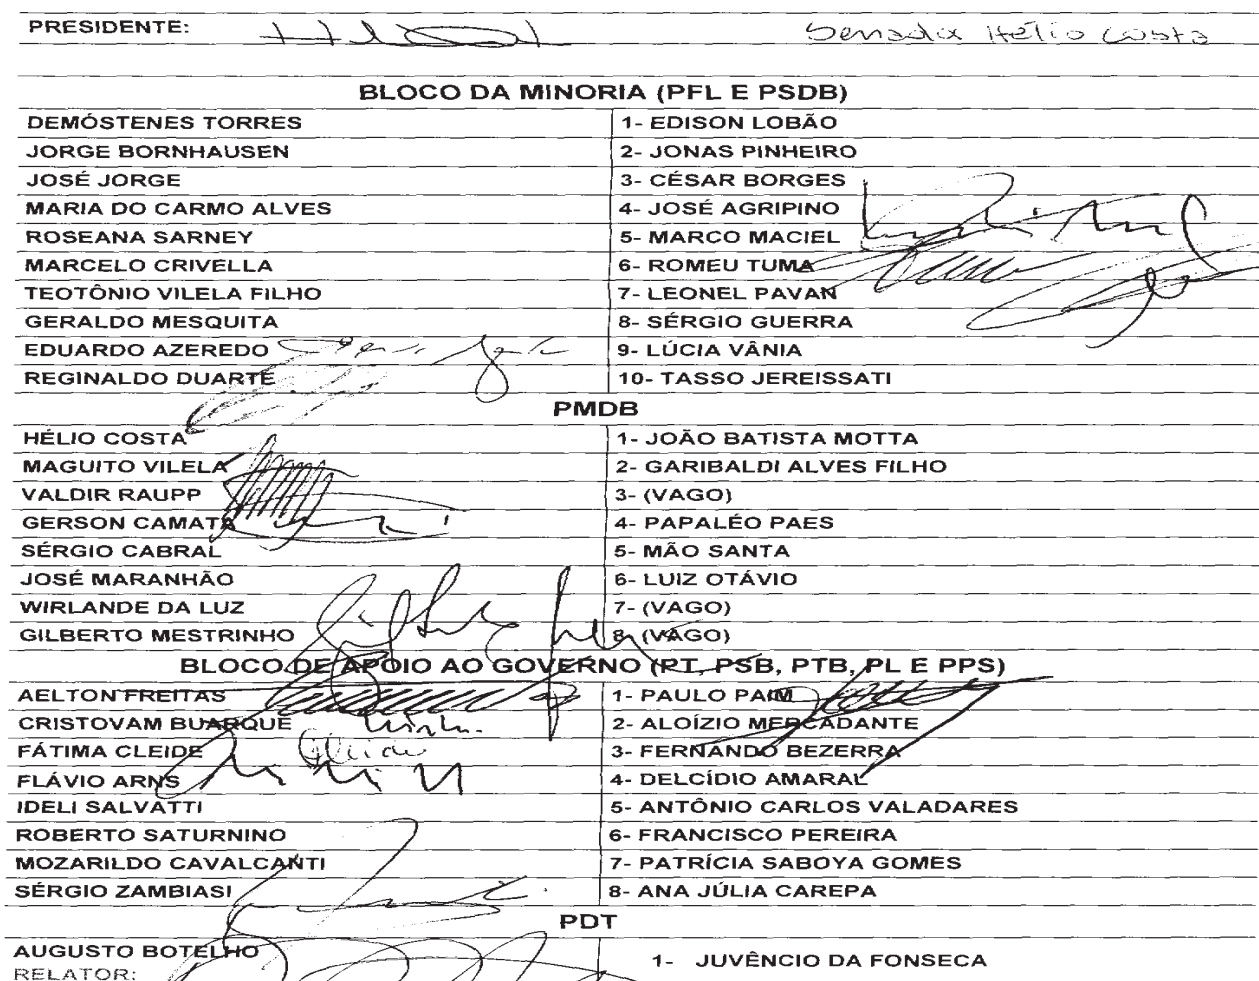 PRESIDENTE: Senador Hélio Costa
BLOCO DA MINORIA (PFL E PSDB)
DEMÓSTENES TORRES 1- EDISON LOBÃO
JORGE BORNHAUSEN 2- JONAS PINHEIRO
JOSÉ JORGE 3- CÉSAR BORGES
MARIA DO CARMO ALVES 4- JOSÉ AGRIPINO
ROSEANA SARNEY 5- MARCO MACIEL
MARCELO CRIVELLA 6- ROMEU TUMA
TEOTÔNIO VILELA FILHO 7- LEONEL PAVAN
GERALDO MESQUITA 8- SÉRGIO GUERRA
EDUARDO AZEREDO 9- LÚCIA VÂNIA
REGINALDO DUARTE 10- TASSO JEREISSATI
PMDB
HÉLIO COSTA 1- JOÃO BATISTA MOTTA
MAGUITO VILELA 2- GARIBALDI ALVES FILHO
VALDIR RAUPP 3- (VAGO)
GERSON CAMATA 4- PAPALÉO PAES
SÉRGIO CABRAL 5- MÃO SANTA
JOSÉ MARANHÃO 6- LUIZ OTÁVIO
WIRLANDE DA LUZ 7- (VAGO)
GILBERTO MESTRINHO 8- (VAGO)
BLOCO DE APOIO AO GOVERNO (PT, PSB, PTB, PL E PPS)
AELTON FREITAS 1- PAULO PAIM
CRISTOVAM BUARQUE 2- ALOÍZIO MERCADANTE
FÁTIMA CLEIDE 3- FERNANDO BEZERRA
FLÁVIO ARNS 4- DELCÍDIO AMARAL
IDELI SALVATTI 5- ANTÔNIO CARLOS VALADARES
ROBERTO SATURNINO 6- FRANCISCO PEREIRA
MOZARILDO CAVALCANTI 7- PATRÍCIA SABOYA GOMES
SÉRGIO ZAMBIASI 8- ANA JÚLIA CAREPA
PDT
AUGUSTO BOTELHO 1- JUVÊNCIO DA FONSECA
RELATOR: